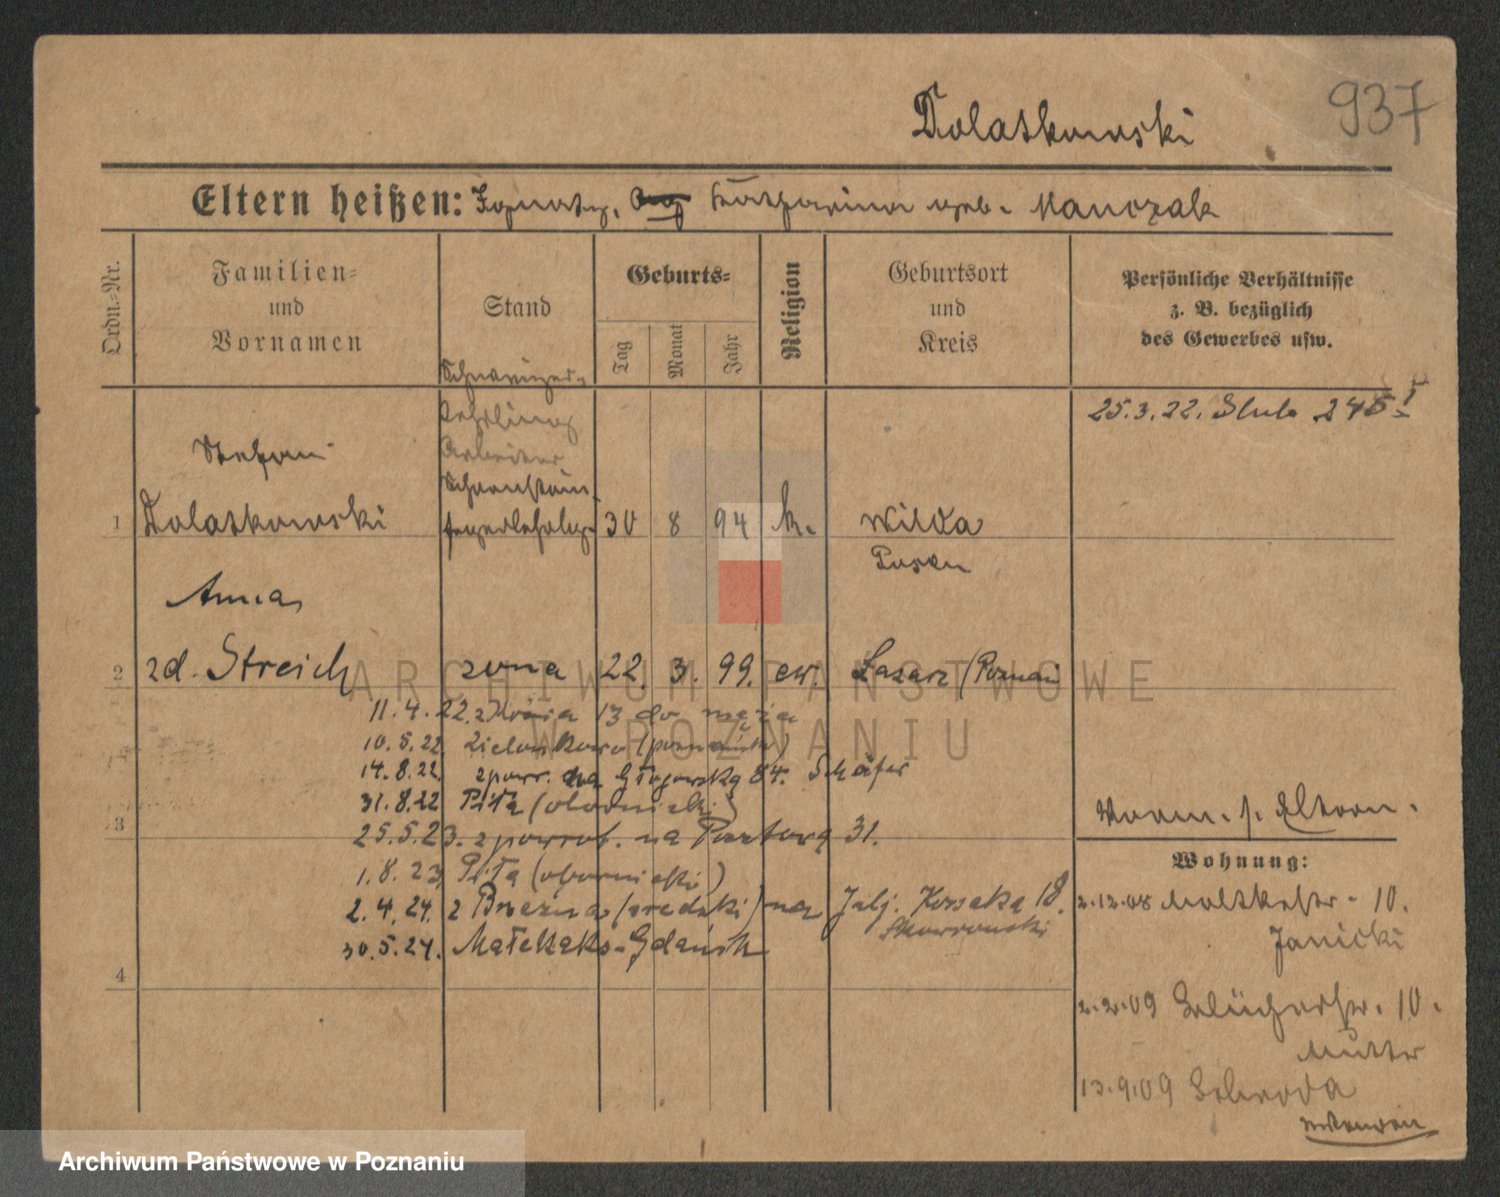 937
Dolatkowski
Eltern heißen: Ignatz, Katharina geb. Manczak
Ordn.-Nr.
Familien-
und
Vornamen
Stand
Geburts-
Tag
Monat
Jahr
Religion
Geburtsort
und
Kreis
Persönliche Verhältnisse
z. B. bezüglich
des Gewerbes usw.
Lehrling
Arbeiter
Schornstein-
fegerlehrlg.
25.3.22. Stub. 245 I
Stefan
1 Dolatkowski 30 8 94 k. Wilda
Posen
Anna
2 zd. Streich żona 22. 3. 99. ew. Łazarz (Poznań
11.4.22. 13 do męża
10.5.22 Zielonkowo (poznański)
14.8.22. zpowr. na Głogowską 84. Schäfer
31.8.22 Piła (obornicki)
3
25.5.23. z powrot. na Pocztową 31.
1.8.23 Piła (obornicki)
2.4.24. z Brzezna (średzki) na Julj. Kossaka 18.
Skowroński
30.5.24. Gdańsk
4
Vorm. s. Eltern.
Wohnung:
2.12.08 Moltkestr. 10.
Janicki
2.2.09 Blücherstr. 10.
Mutter
13.9.09 Schroda
ARCHIWUM PAŃSTWOWE
W POZNANIU
Archiwum Państwowe w Poznaniu